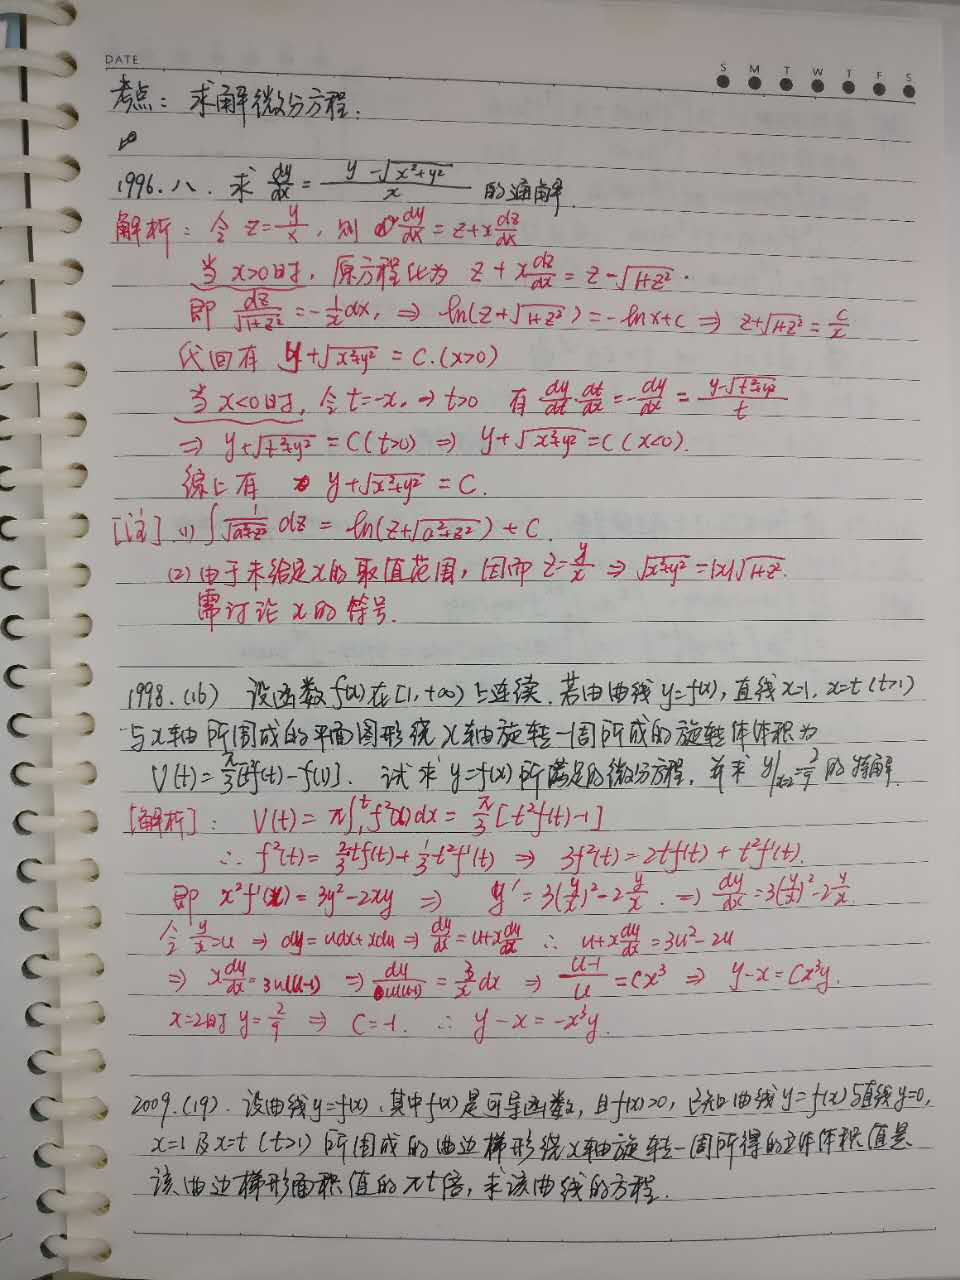 DATE
S M T W T F S
考点：求解微分方程.
1996.八. 求 dy/dx = (y-√(x²+y²))/x 的通解.
解析：令 z=y/x, 则 dy/dx = z+x dz/dx
当x>0时, 原方程化为 z + x dz/dx = z-√(1+z²).
即 dz/√(1+z²) = -1/x dx, ⇒ ln(z+√(1+z²)) = -lnx+c ⇒ z+√(1+z²) = c/x
代回有 y+√(x²+y²) = C.(x>0)
当x<0时, 令t=-x, ⇒ t>0 有 dy/dt·dt/dx = -dy/dx = (y-√(t²+y²))/t
⇒ y+√(t²+y²) = C(t>0) ⇒ y+√(x²+y²) = C(x<0).
综上有 y+√(x²+y²) = C.
[注] (1) ∫ 1/√(a²+z²) dz = ln(z+√(a²+z²)) + C.
(2) 由于未给定x的取值范围, 因而 z=y/x ⇒ √(x²+y²) = |x|√(1+z²).
需讨论x的符号.
1998.(16) 设函数f(x)在[1,+∞)上连续. 若由曲线y=f(x), 直线x=1, x=t(t>1)
与x轴所围成的平面图形绕x轴旋转一周所成的旋转体体积为
V(t)=π/3[t²f(t)-f(1)]. 试求y=f(x)所满足的微分方程, 并求y|x=2=2/9的特解.
[解析]: V(t) = π∫₁ᵗf²(x)dx = π/3[t²f(t)-1]
∴ f²(t) = 2/3tf(t)+1/3t²f'(t) ⇒ 3f²(t) = 2tf(t) + t²f'(t).
即 x²f'(x) = 3y²-2xy ⇒ y' = 3(y/x)²-2y/x. ⇒ dy/dx = 3(y/x)²-2y/x.
令 y/x=u ⇒ dy=udx+xdu ⇒ dy/dx = u+x du/dx ∴ u+x du/dx = 3u²-2u
⇒ x du/dx = 3u(u-1) ⇒ du/u(u-1) = 3/x dx ⇒ (u-1)/u = Cx³ ⇒ y-x = Cx³y.
x=2时 y=2/9 ⇒ C=-1. ∴ y-x = -x³y.
2009.(19). 设曲线y=f(x), 其中f(x)是可导函数, 且f(x)>0, 已知曲线y=f(x)与直线y=0,
x=1及x=t (t>1) 所围成的曲边梯形绕x轴旋转一周所得的立体体积值是
该曲边梯形面积值的πt倍, 求该曲线的方程.